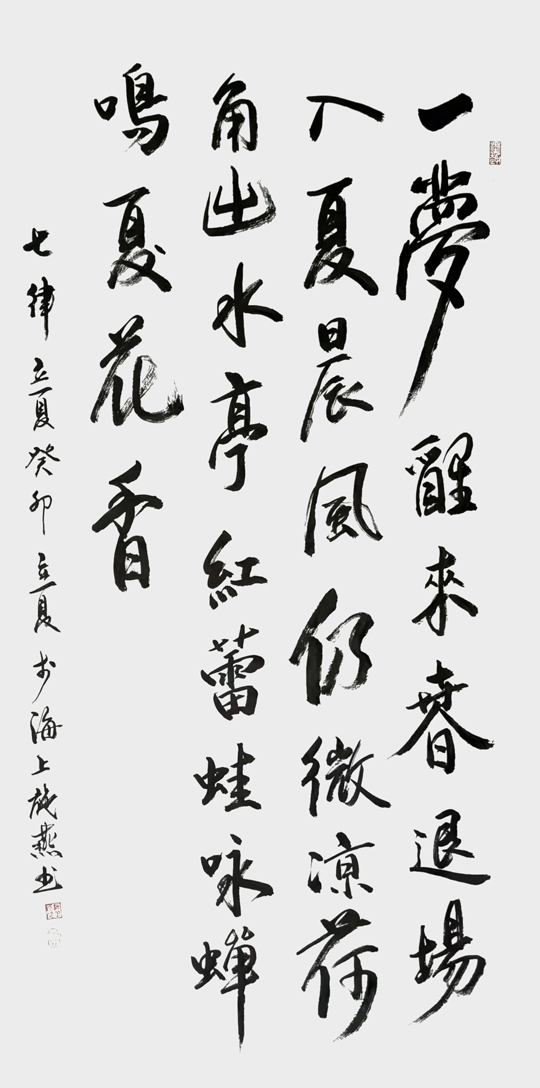 一夢醒來春退場
入夏晨風仍微凉荷
角出水亭紅蕾蛙咏蟬
鳴夏花香
七律立夏癸卯立夏於海上 燕书